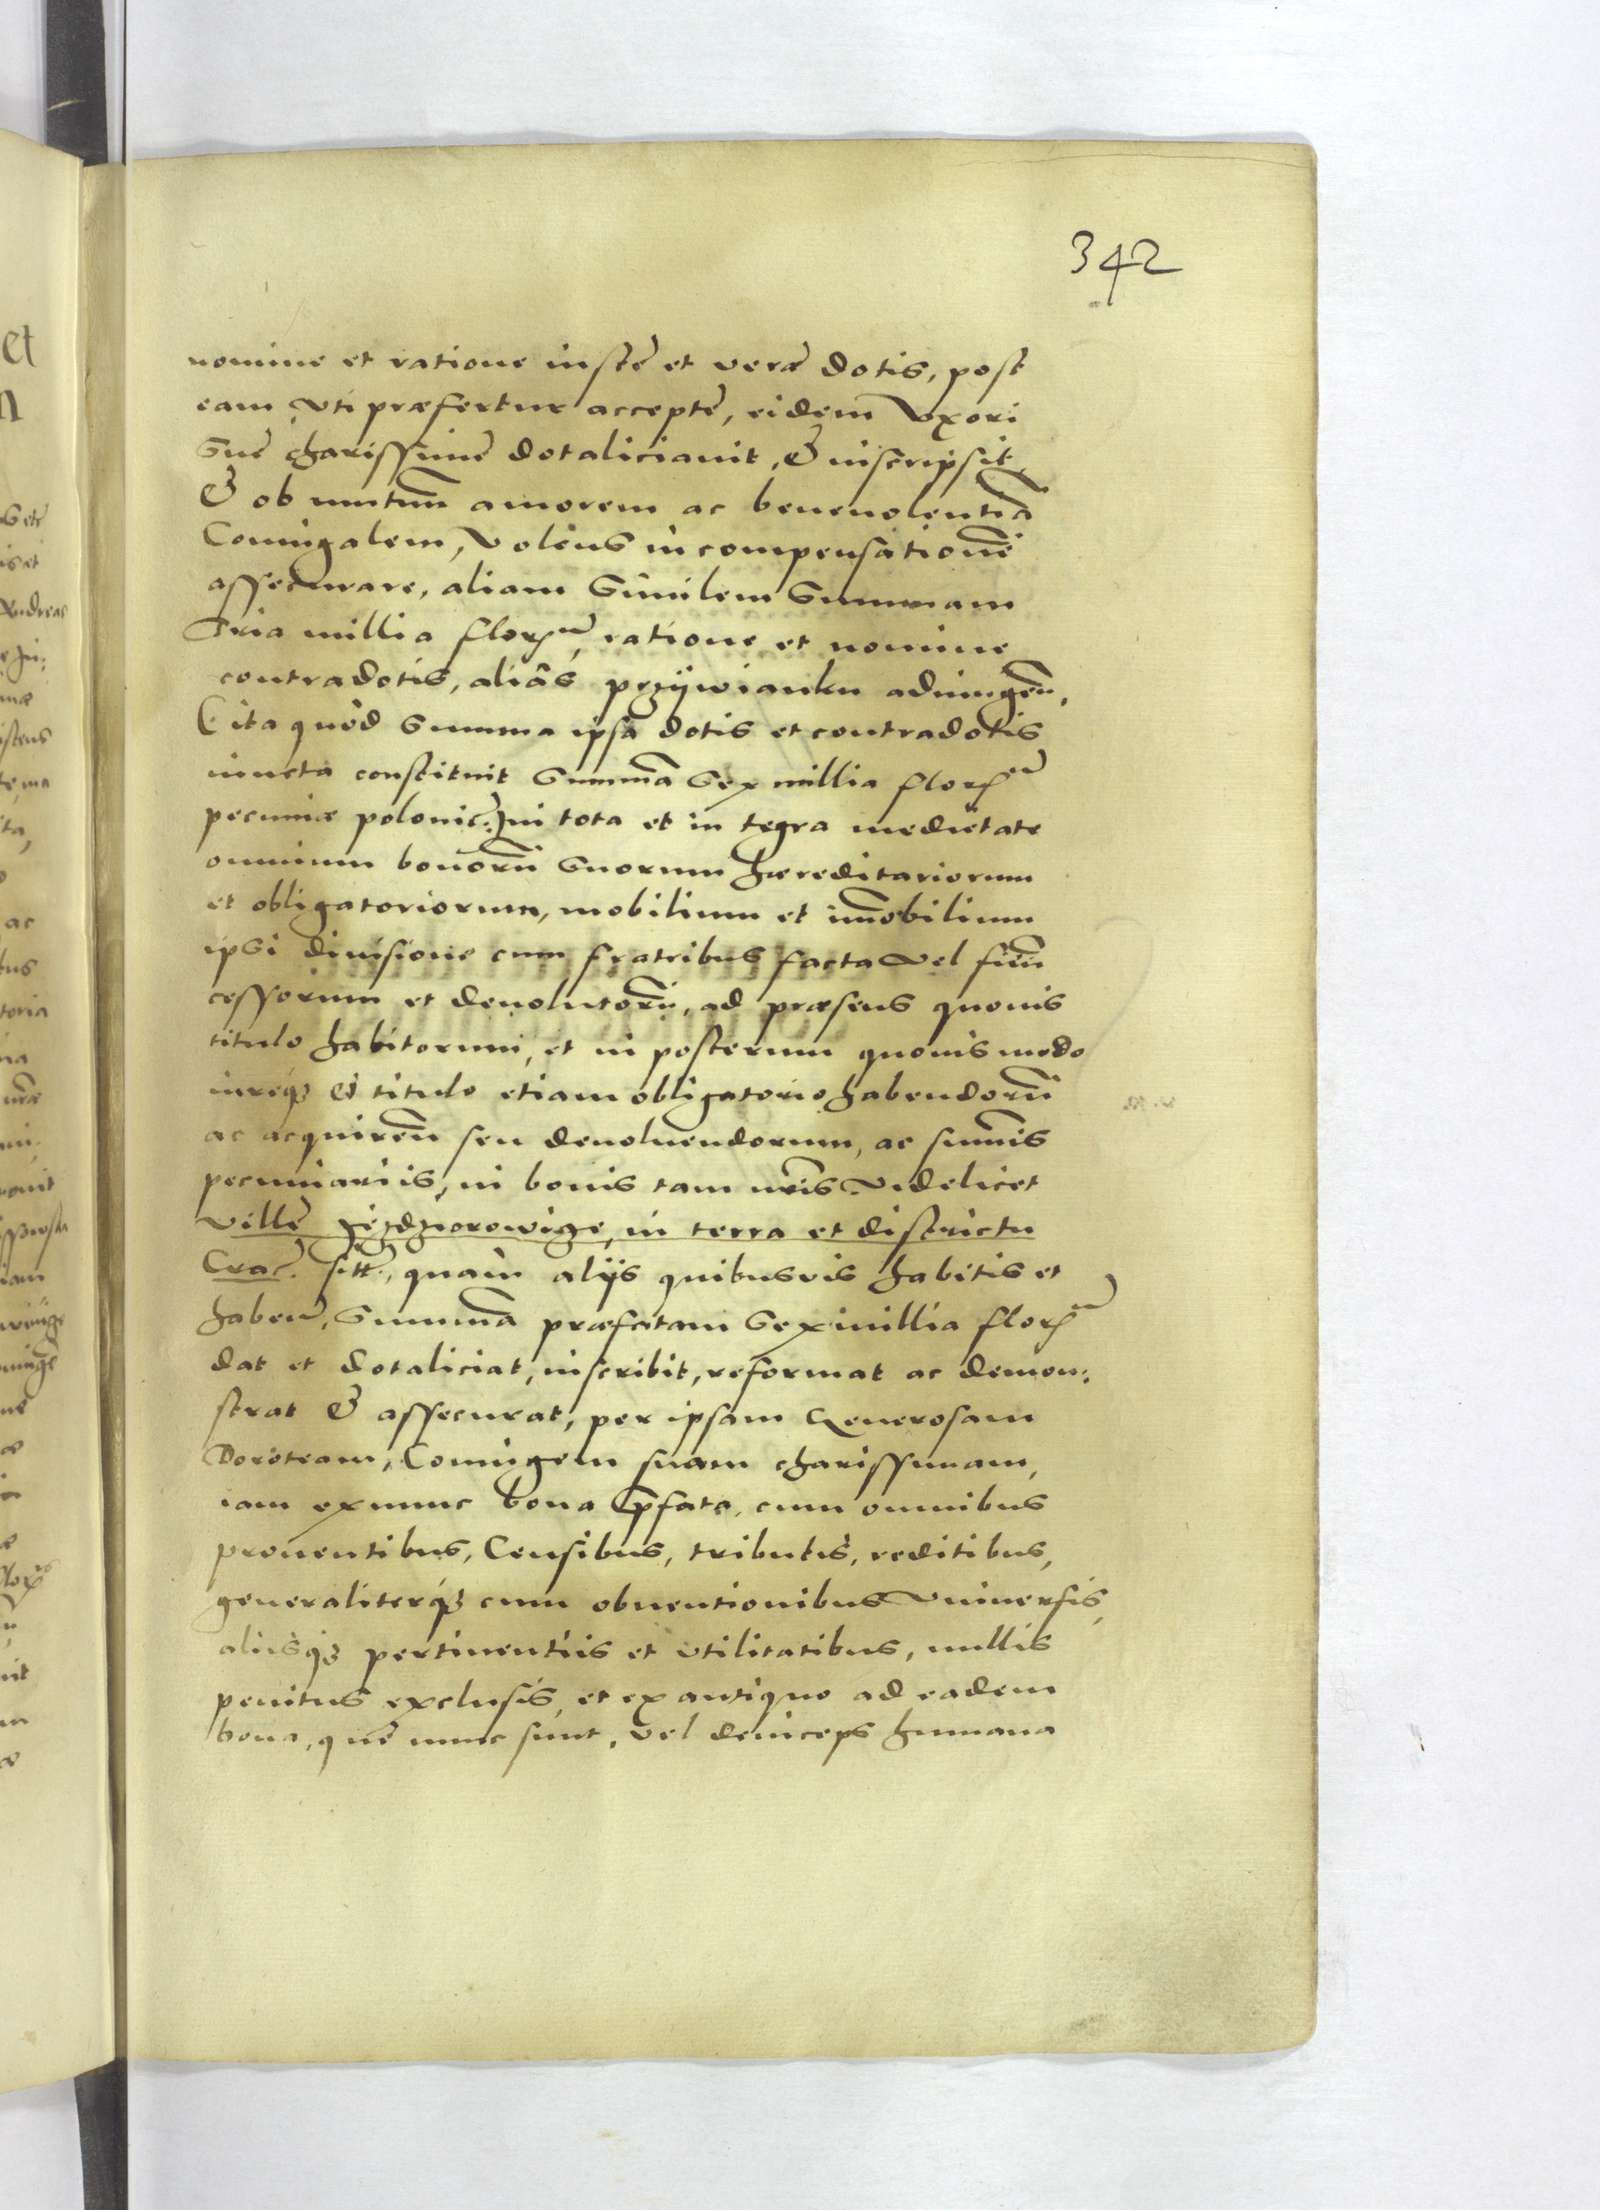 342
nomine et ratione iustę et verae dotis, post
eam vti praefertur acceptę, eidem Vxori
suę charissimę dotaliciauit, & inscripsit,
& ob mutuũ amorem ac beneuolentiã
Coniugalem, Volens in compensationẽ
assecurare, aliam similem summam
Tria millia florẽ, ratione et nomine
contradotis, aliâs przÿwianku adiungeñ,
(ita quòd summa ipsa dotis et contradotis
iuncta constituit summã sex millia florẽ
pecuniae polonic:) in tota et in tegra medietate
omnium bonorũ suorum haereditariorum
et obligatoriorum, mobilium et im̃obilium
ipsi diuisione cum fratribus facta vel fieñ
cessorum et deuolutorũ, ad praesens quouis
titulo habitorum, et in posterum quouis modo
iureq3 & titulo etiam obligatorio habendorũ
ac acquireñ seu deuoluendorum, ac sum̃is
pecuniariis, in bonis tam
villę in terra et districtu
Crac: sitt:, quàm alijs quibusuis habitis et
habeñ, summã praefatam sex millia florẽ
dat et dotaliciat, inscribit, reformat ac demon:
strat & assecurat, per ipsam Generosam
Doroteam, Coniugem suam charissimam,
iam ex nunc bona p̃fata, cum omnibus
prouentibus, Censibus, tributis, reditibus,
generaliterq3 cum obuentionibus Vniuersis,
aliisq3 pertinentiis et vtilitatibus, nullis
penitus exclusis, et ex antiquo ad eadem
bona, quę nunc sunt, vel deinceps humana